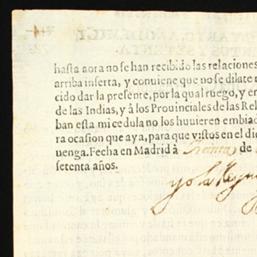 hasta aora no se han recibido las relaciones
arriba inserta, y conviene que no se dilate
cido dar la presente, por la qual ruego, y en
de las Indias, y à los Provinciales de las Rel
ban esta mi cedula no los huvieren embiad
ra ocasion que aya, para que vistos en el di
uenga. Fecha en Madrid à treinta de
setenta años.
yo la Reyna